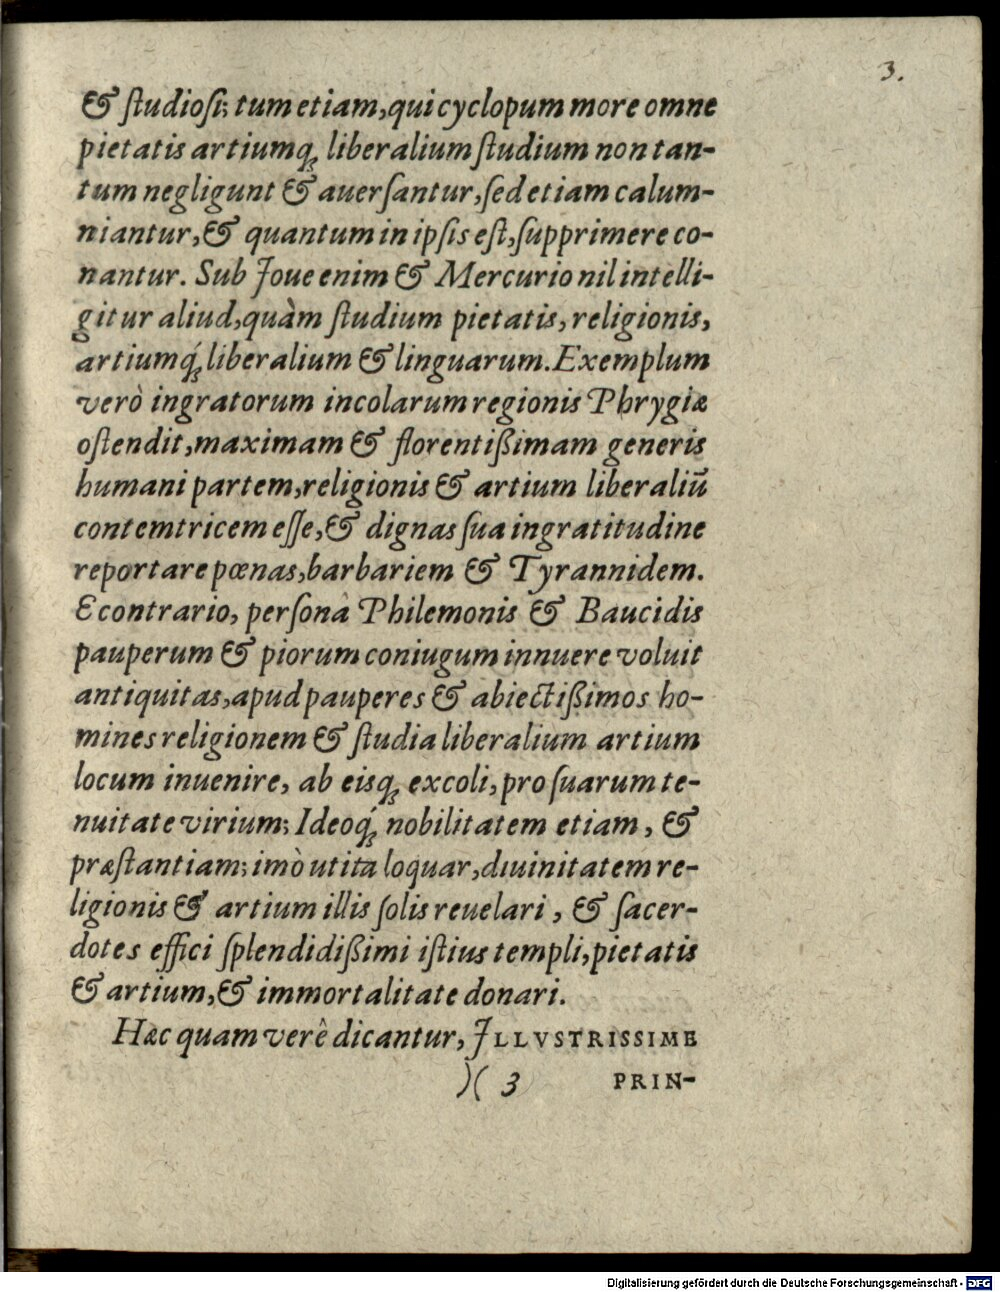 3.
& ſtudioſi; tum etiam, qui cyclopum more omne
pietatis artiumq́ꝫ liberalium ſtudium non tan-
tum negligunt & auerſantur, ſed etiam calum-
niantur, & quantum in ipſis eſt, ſupprimere co-
nantur. Sub Joue enim & Mercurio nil intelli-
gitur aliud, quàm ſtudium pietatis, religionis,
artiumq́ꝫ liberalium & linguarum. Exemplum
verò ingratorum incolarum regionis Phrygiæ
oſtendit, maximam & florentißimam generis
humani partem, religionis & artium liberaliũ
contemtricem eſſe, & dignas ſua ingratitudine
reportare pœnas, barbariem & Tyrannidem.
Econtrario, perſona Philemonis & Baucidis
pauperum & piorum coniugum innuere voluit
antiquitas, apud pauperes & abiectißimos ho-
mines religionem & ſtudia liberalium artium
locum inuenire, ab eisqꝫ excoli, pro ſuarum te-
nuitate virium; Ideoq́ꝫ nobilitatem etiam, &
præſtantiam; imò ut ita loquar, diuinitatem re-
ligionis & artium illis ſolis reuelari, & ſacer-
dotes effici ſplendidißimi iſtius templi, pietatis
& artium, & immortalitate donari.
Hæc quam verê dicantur, JLLVSTRISSIME
)( 3 PRIN-
Digitalisierung gefördert durch die Deutsche Forschungsgemeinschaft - DFG